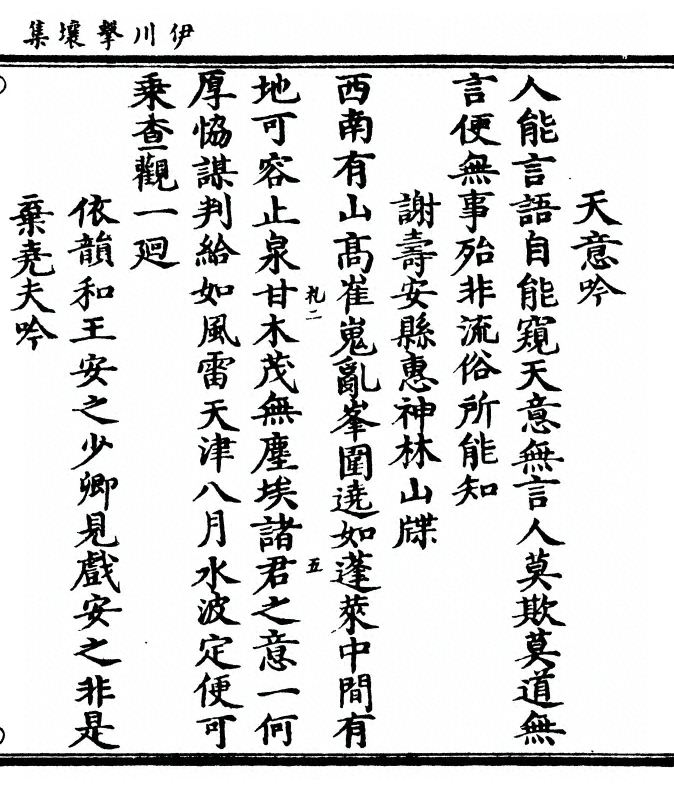 集壤擊川伊
天意吟
人能言語自能窺天意無言人莫欺莫道無
言便無事殆非流俗所能知
謝壽安縣惠神林山牒
西南有山高崔嵬亂峯圍遶如蓬萊中間有
地可容止泉甘木茂無塵埃諸君之意一何
札二
五
厚恊謀判給如風雷天津八月水波定便可
乘查觀一廻
依韻和王安之少卿見戲安之非是
棄堯夫吟